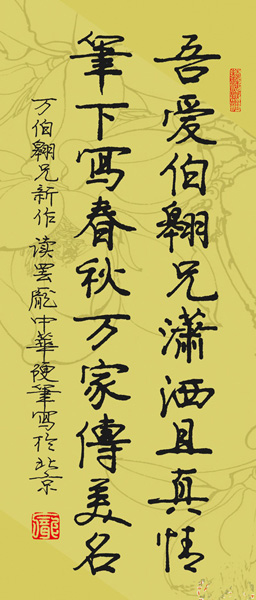 吾爱伯翱兄潇洒且真情
筆下写春秋万家傳美名
万伯翱兄新作读罢龐中華硬筆写於北京